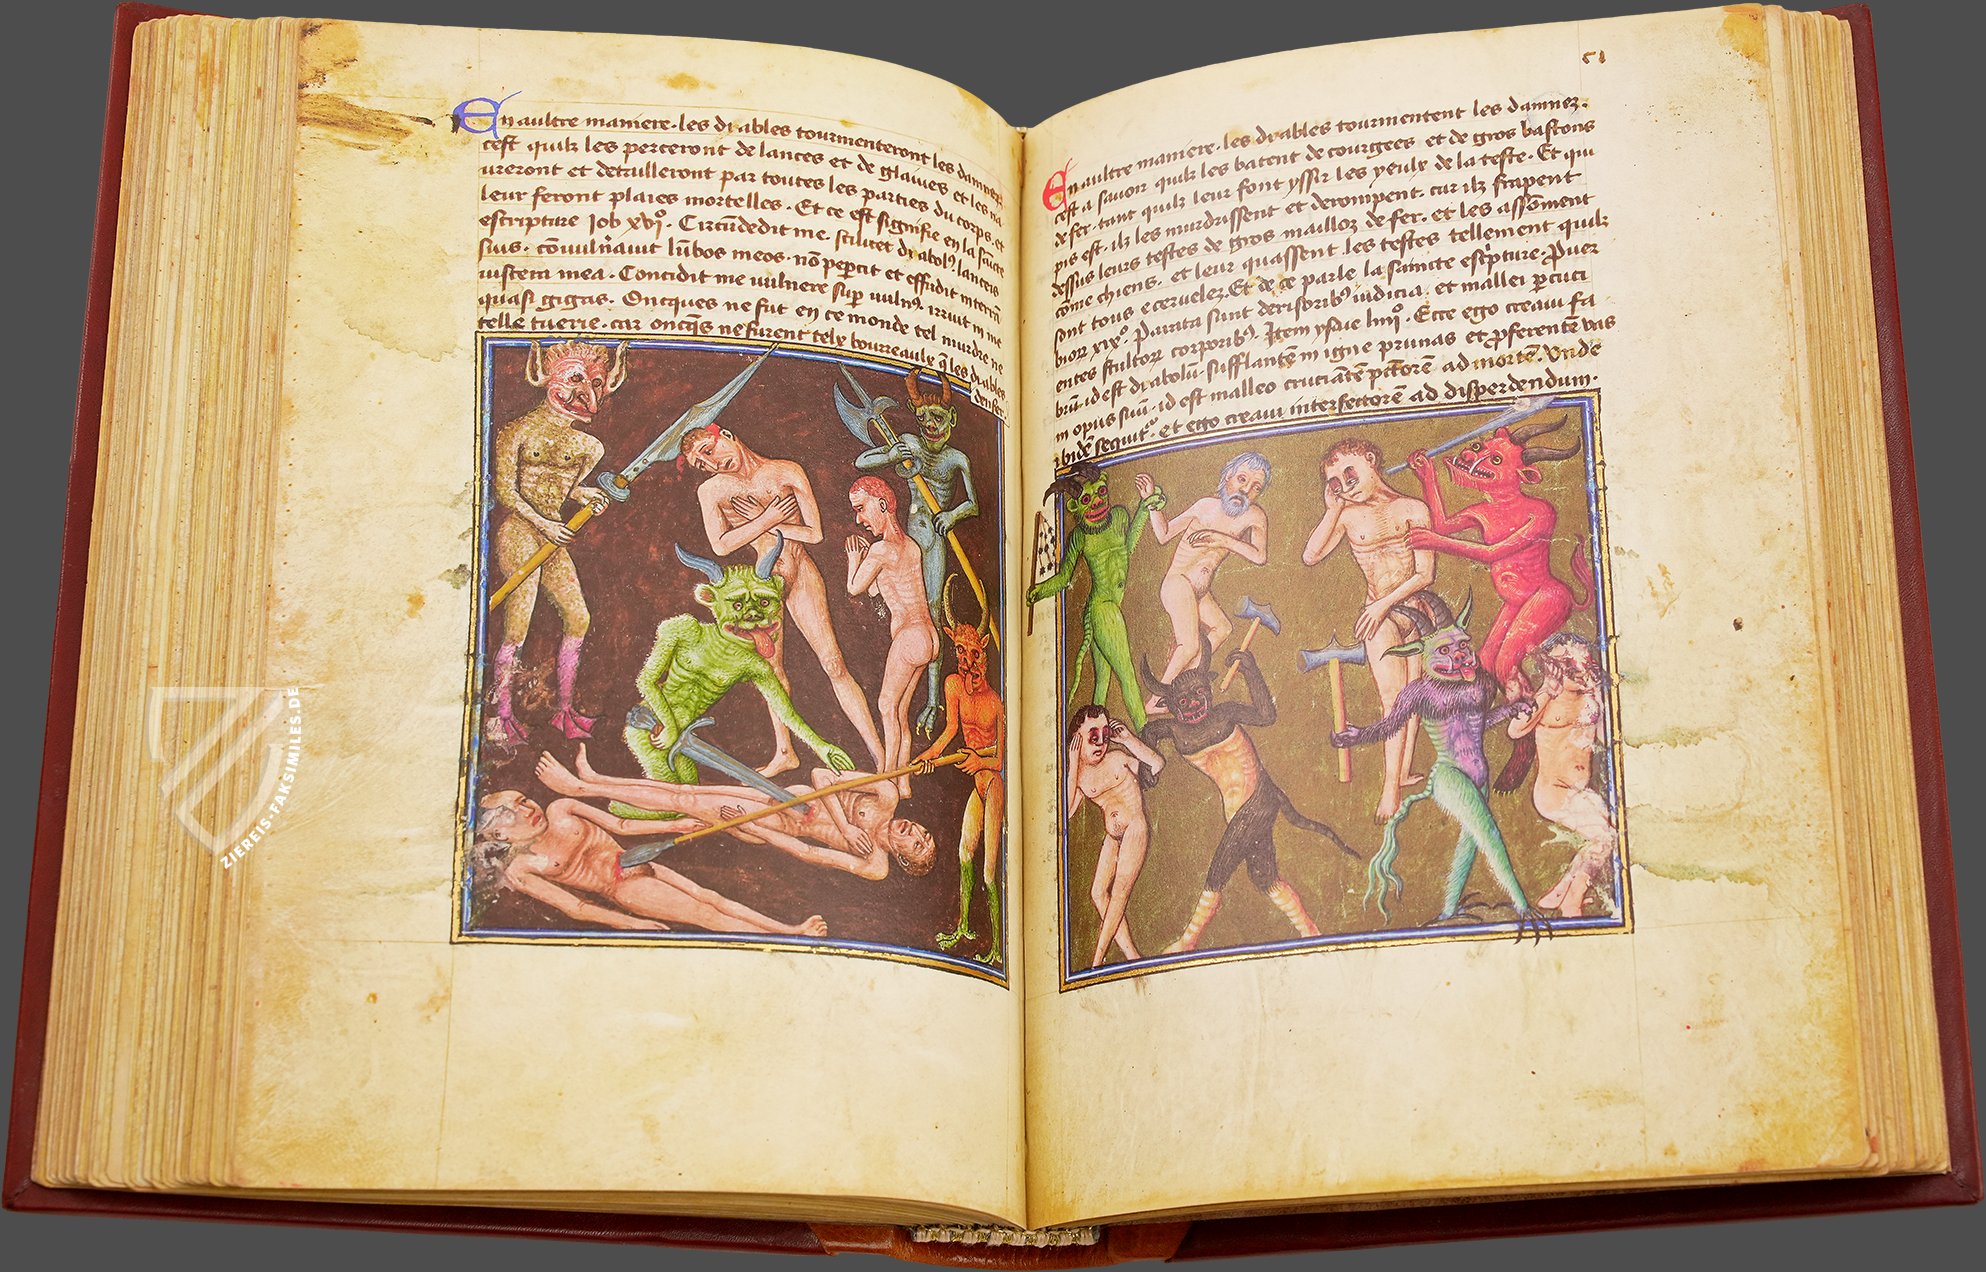 En aultre maniere les dyables tourmenteront les dampnez
cest quilz les perceront de lances et de glaives et les na
vreront et detrulleront par toutes les parties du corps et
leur feront plaies mortelles. Et ce est signifie en la saincte
escripture Iob xvi°. Circūdedit me scilicet dyabolꝰ lanceis
suis. cōvulnavit lūbos meos. nō pepcit et effudit in terrā
viscera mea. Concidit me vulnere sup vulnꝰ. irruit in me
quasi gigas. Oncques ne fut en ce monde tel murdre ne
telle tuerie. car oncq̄s ne furent telx bourreaulx q̄ les dyables
denfer.
51
En aultre maniere. les dyables tourmentent les damnez.
cest a savoir quilz les batent de courgees et de gros bastons
de fer. tant quilz leur font yssir les yeulx de la teste. Et qui
pis est. ilz les murdrissent et derompent. car ilz frapent
dessus leurs testes de gros mailloz de fer. et les assōment
cōme chiens. et leur quassent les testes tellement quilz
sont tous ecervelez. Et de ce parle la saincte escripture Pver
bioꝝ xix°. Parata sunt derisoribꝰ iudicia. et mallei pcuci
entes stultoꝝ corporibꝰ. Item ysaie liiii°. Ecce ego creavi fa
brū. id est dyabolū. sufflantem in igne prunas et pferentē vas
in opus suū. id est malleo cruciātē pctōrē ad mortē. Unde
ibidē sequitᵉ. et ego creavi interfectorē ad disperdendum.
ZIEREIS-FAKSIMILES.DE